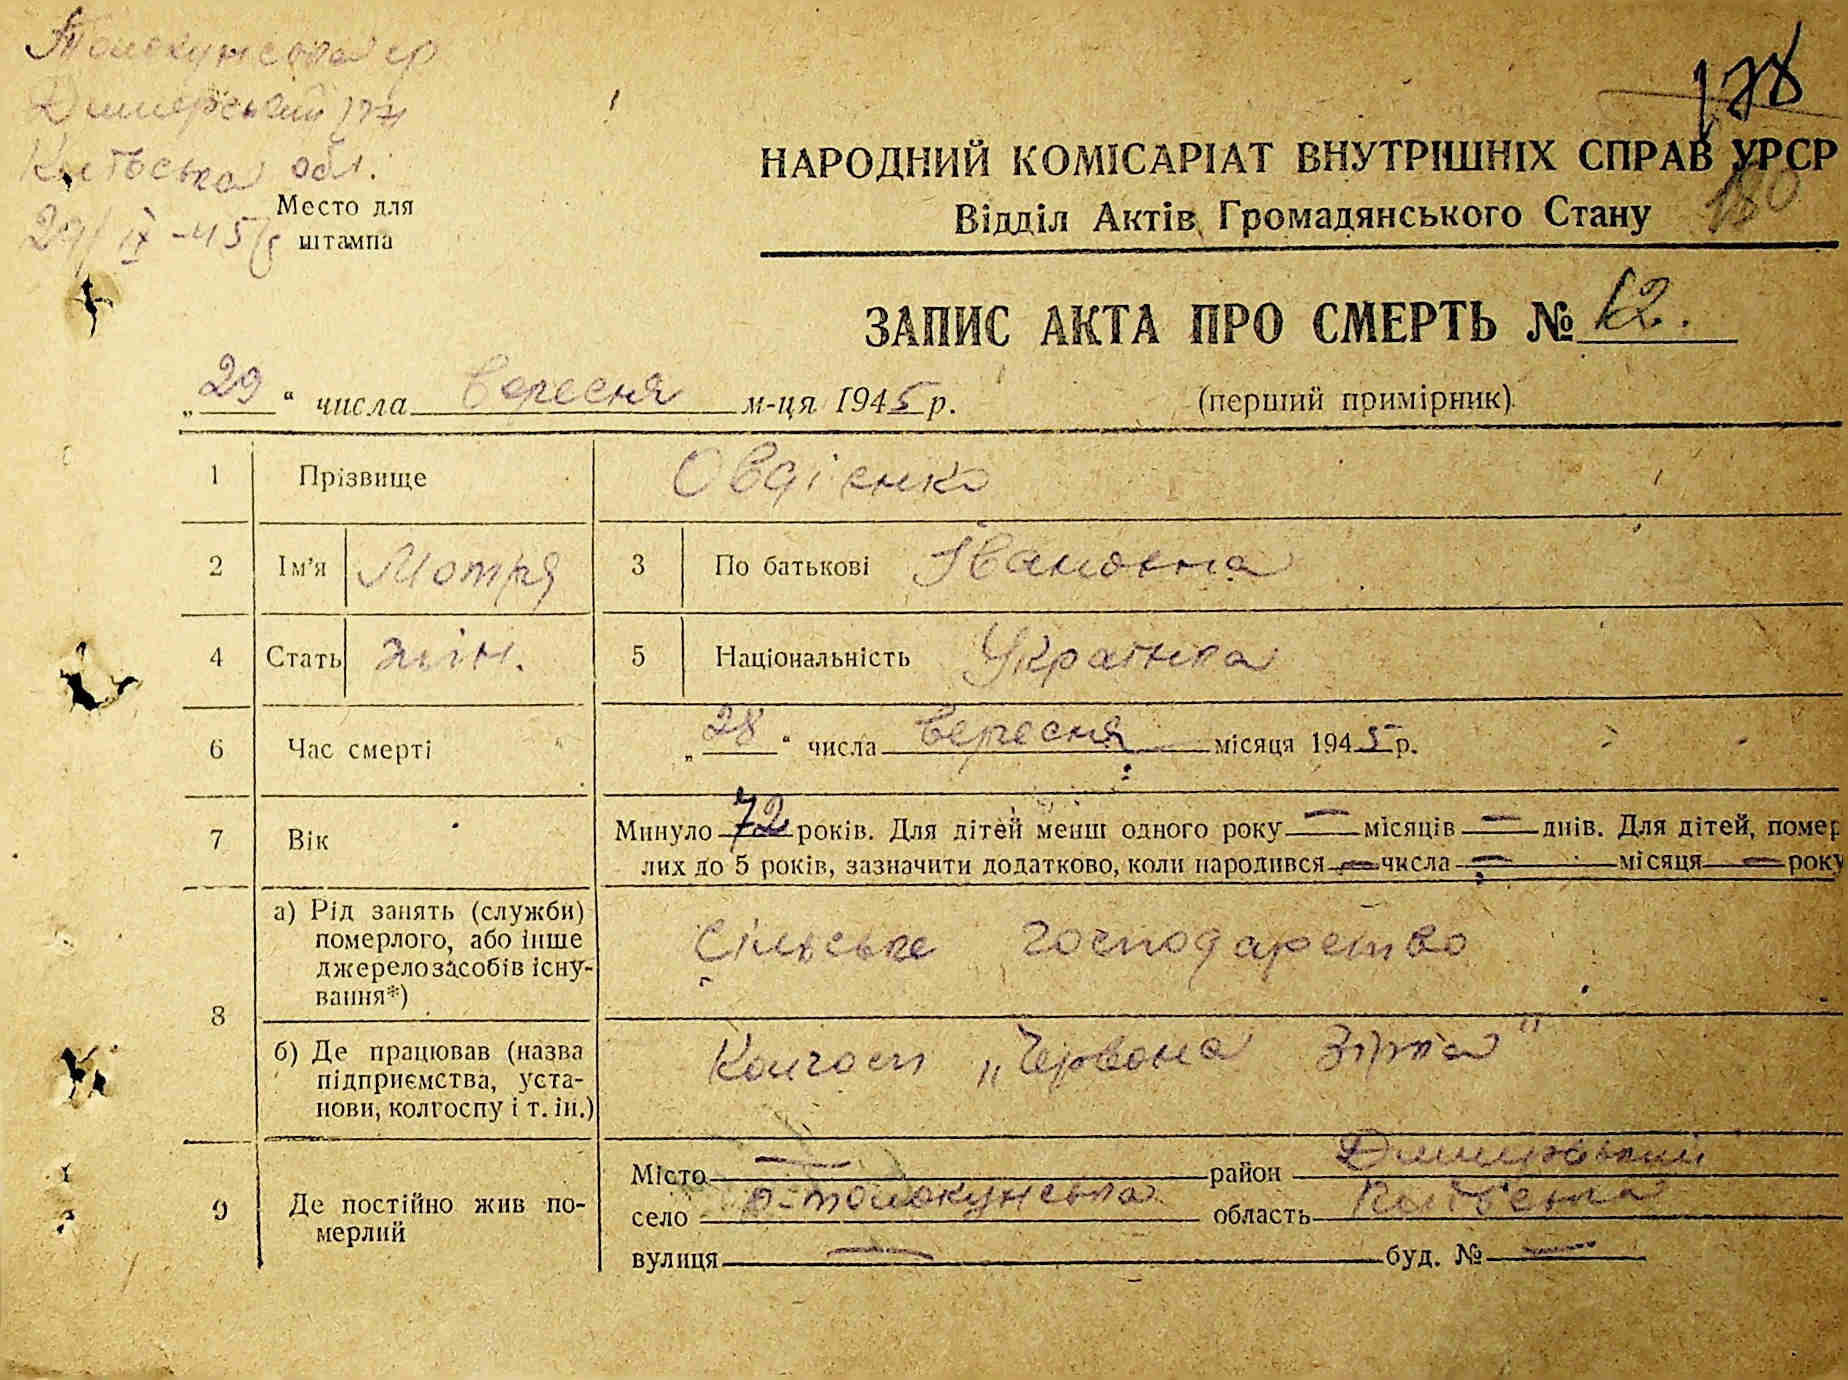 Толокунська ср
Димерський р-н
Київська обл.
29/IX-45р
Место для
штампа
178
180
НАРОДНИЙ КОМІСАРІАТ ВНУТРІШНІХ СПРАВ УРСР
Відділ Актів Громадянського Стану
ЗАПИС АКТА ПРО СМЕРТЬ № 12.
„29“ числа вересня м-ця 1945 р. (перший примірник)
1 Прізвище Овдієнко
2 Ім'я Мотря 3 По батькові Івановна
4 Стать жін. 5 Національність Українка
6 Час смерті „28“ числа вересня місяця 1945 р.
7 Вік Минуло 72 років. Для дітей менш одного року — місяців — днів. Для дітей, помер
лих до 5 років, зазначити додатково, коли народився — числа — місяця — року
8 а) Рід занять (служби)
померлого, або інше
джерело засобів існу-
вання*)
Сільське господарство
б) Де працював (назва
підприємства, уста-
нови, колгоспу і т. ін.)
Колгосп „Червона Зірка"
9 Де постійно жив по-
мерлий
Місто — район Димерський
село Толокунська область Київська
вулиця — буд. № —